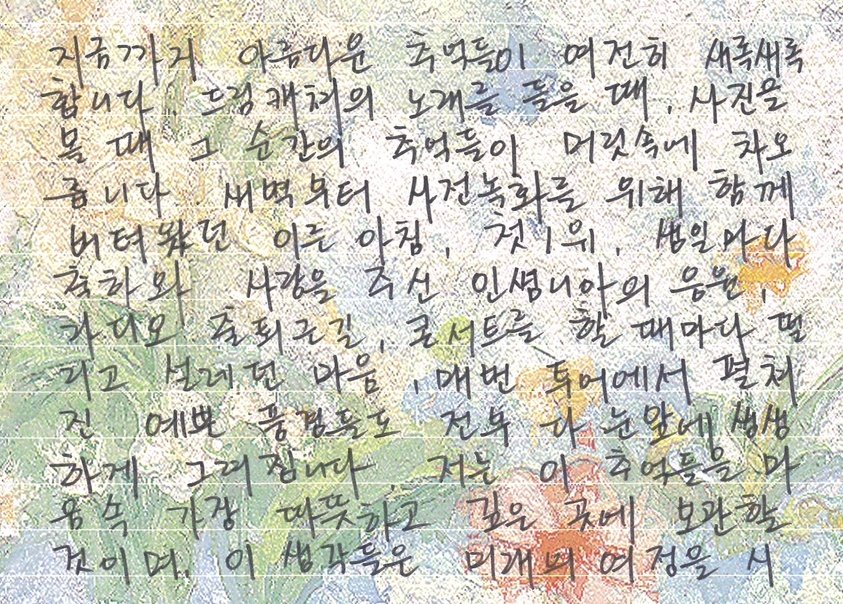 지금까지 아름다운 추억들이 여전히 새록새록
합니다. 드림캐쳐의 노래를 들을 때, 사진을
볼 때 그 순간의 추억들이 머릿속에 차오
릅니다. 새벽부터 사전녹화를 위해 함께
버텨왔던 이른 아침, 첫 1위, 생일마다
축하와 사랑을 주신 인썸니아의 응원,
라디오 출퇴근길, 콘서트를 할 때마다 떨
리고 설레던 마음, 매번 투어에서 펼쳐
진 예쁜 풍경들도 전부 다 눈앞에 생생
하게 그려집니다. 저는 이 추억들을 마
음속 가장 따뜻하고 깊은 곳에 보관할
것이며, 이 생각들은 미래의 여정을 시